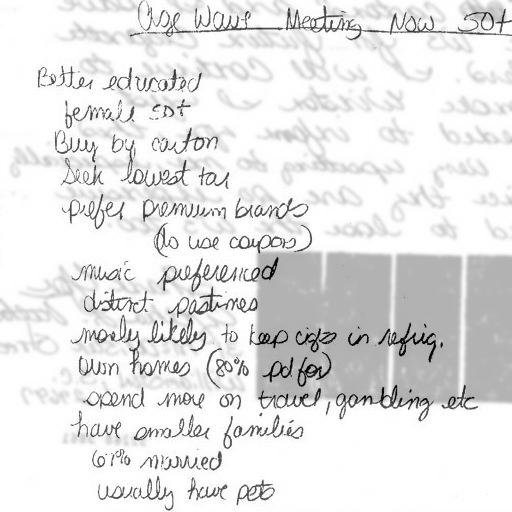 Age Wave Meeting Now 50+
Better educated
female 50+
Buy by carton
Seek lowest tar
prefer premium brands
(to use coupons)
music preferenced
distinct pastimes
morely likely to keep cigs in refrig.
Own homes (80% pd for)
spend more on travel, gambling etc
have smaller families
67% married
usually have pets